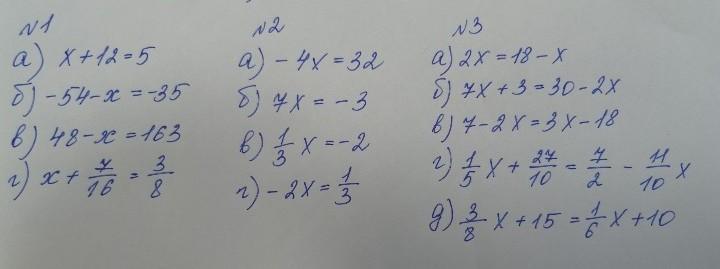 №1
а) x+12=5
б) -54-x=-35
в) 48-x=163
г) x+7/16=3/8
№2
а) -4x=32
б) 7x=-3
в) 1/3 x=-2
г) -2x=1/3
№3
а) 2x=18-x
б) 7x+3=30-2x
в) 7-2x=3x-18
г) 1/5 x+27/10=7/2-11/10 x
д) 3/8 x+15=1/6 x+10